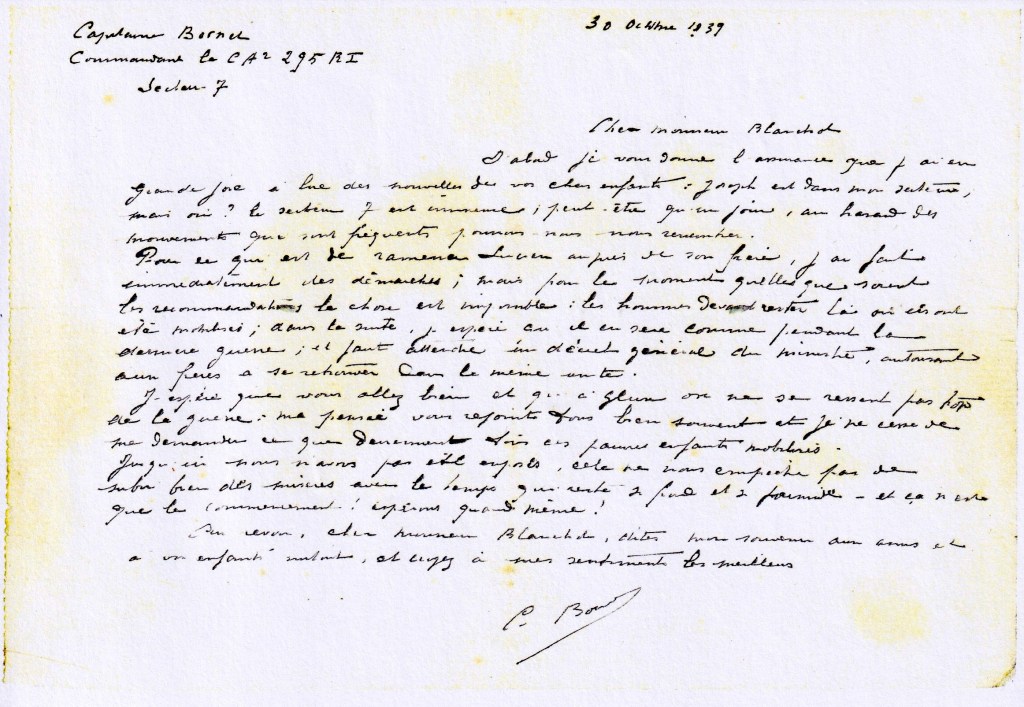 Capitaine Bornet
30 Octobre 1939
Commandant la CA2 295 RI
Secteur 7
Cher monsieur Blanchot
D'abord je vous donne l'assurance que j'ai eu
grande joie à lire des nouvelles de vos chers enfants : Joseph est dans mon secteur,
mais où ? le secteur 7 est immense ; peut-être qu'un jour, au hasard des
mouvements que sont fréquents pourrons nous nous rencontrer.
Pour ce qui est de ramener Lucien auprès de son frère, j'ai fait
immédiatement des démarches ; mais pour le moment quelles que soient
les recommandations la chose est impossible : les hommes devant rester là où ils ont
été mobilisés ; dans la suite, j'espère qu'il en sera comme pendant la
dernière guerre ; il faut attendre un décret général du ministre, autorisant
aux frères à se retrouver dans la même unité.
J'espère que vous allez bien et qu'à Glux on ne se ressent pas trop
de la guerre : ma pensée vous rejoint tous bien souvent et je ne cesse de
me demander ce que deviennent tous ces pauvres enfants mobilisés.
Jusqu'ici nous n'avons pas été exposés, cela ne nous empêche pas de
subir bien des misères avec le temps qui reste si froid et si - et ça n'est
que le commencement ! espérons quand même !
Au revoir, cher monsieur Blanchot, dites mon souvenir aux amis et
à vos enfants surtout, et croyez à mes sentiments les meilleurs